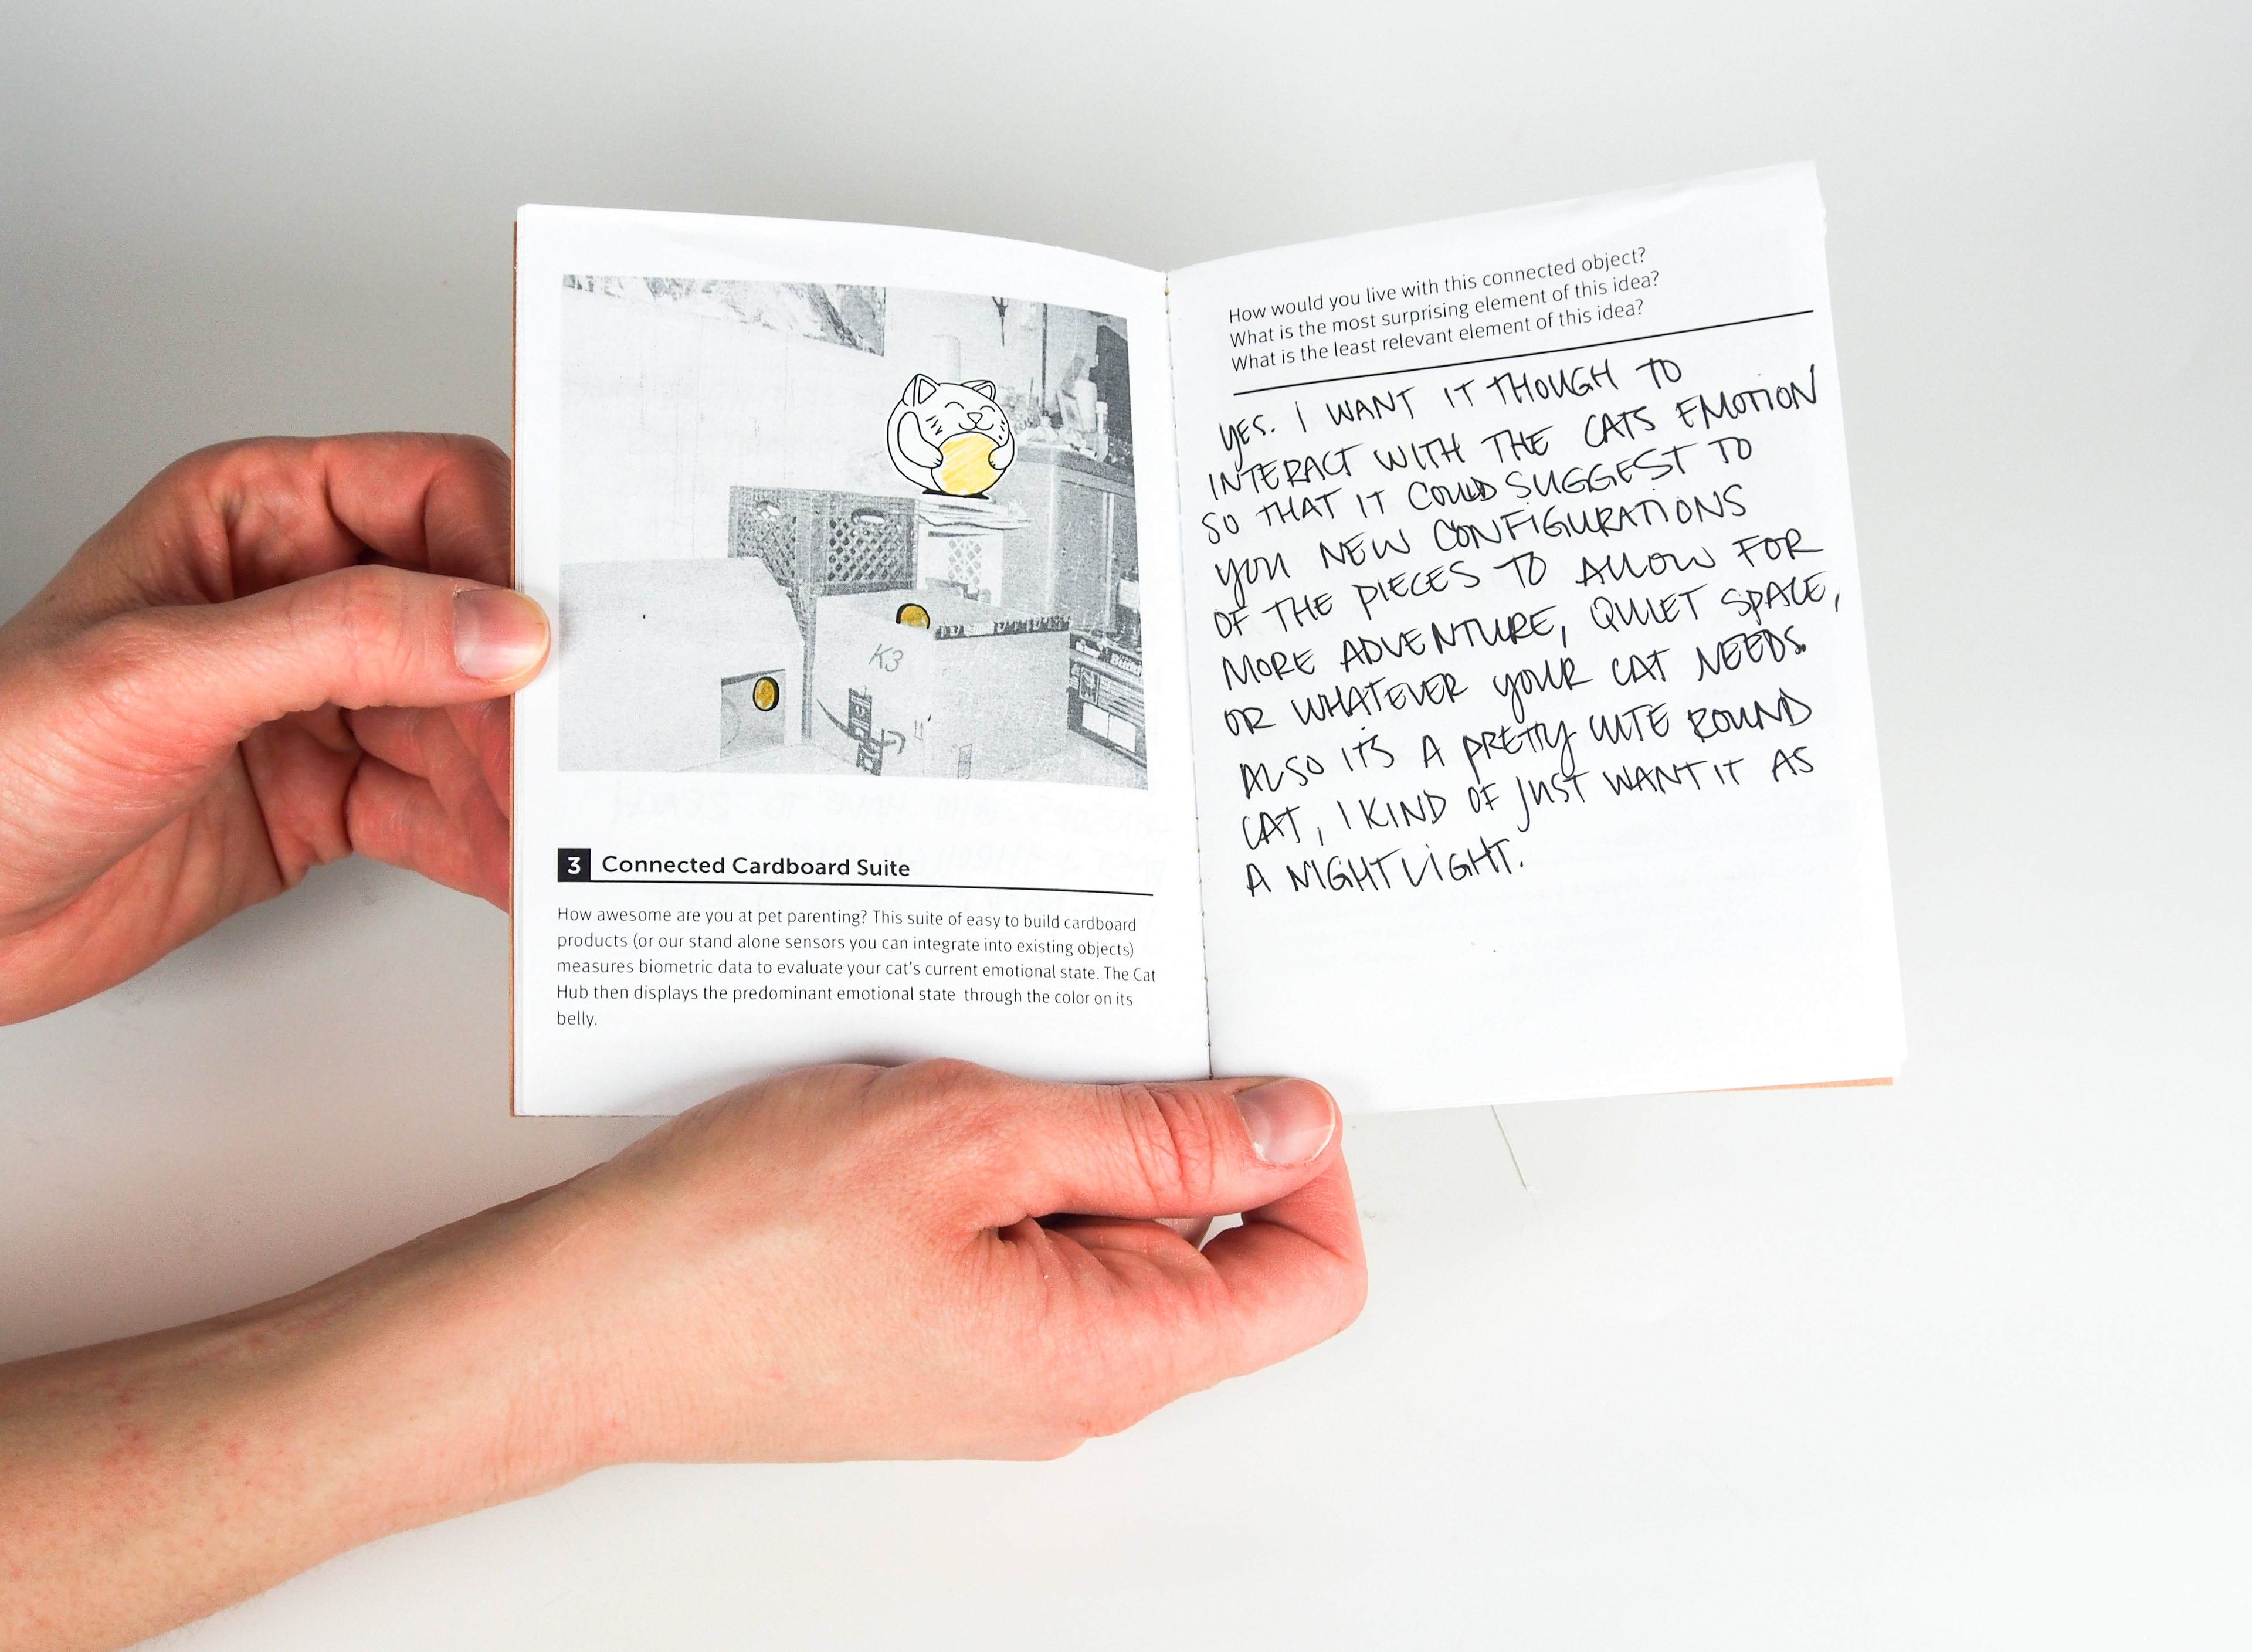 K3
3 Connected Cardboard Suite
How awesome are you at pet parenting? This suite of easy to build cardboard
products (or our stand alone sensors you can integrate into existing objects)
measures biometric data to evaluate your cat's current emotional state. The Cat
Hub then displays the predominant emotional state through the color on its
belly.
How would you live with this connected object?
What is the most surprising element of this idea?
What is the least relevant element of this idea?
YES. I WANT IT THOUGH TO
INTERACT WITH THE CATS EMOTION
SO THAT IT COULD SUGGEST TO
YOU NEW CONFIGURATIONS
OF THE PIECES TO ALLOW FOR
MORE ADVENTURE, QUIET SPACE,
OR WHATEVER YOUR CAT NEEDS.
ALSO IT'S A PRETTY CUTE ROUND
CAT, I KIND OF JUST WANT IT AS
A NIGHTLIGHT.